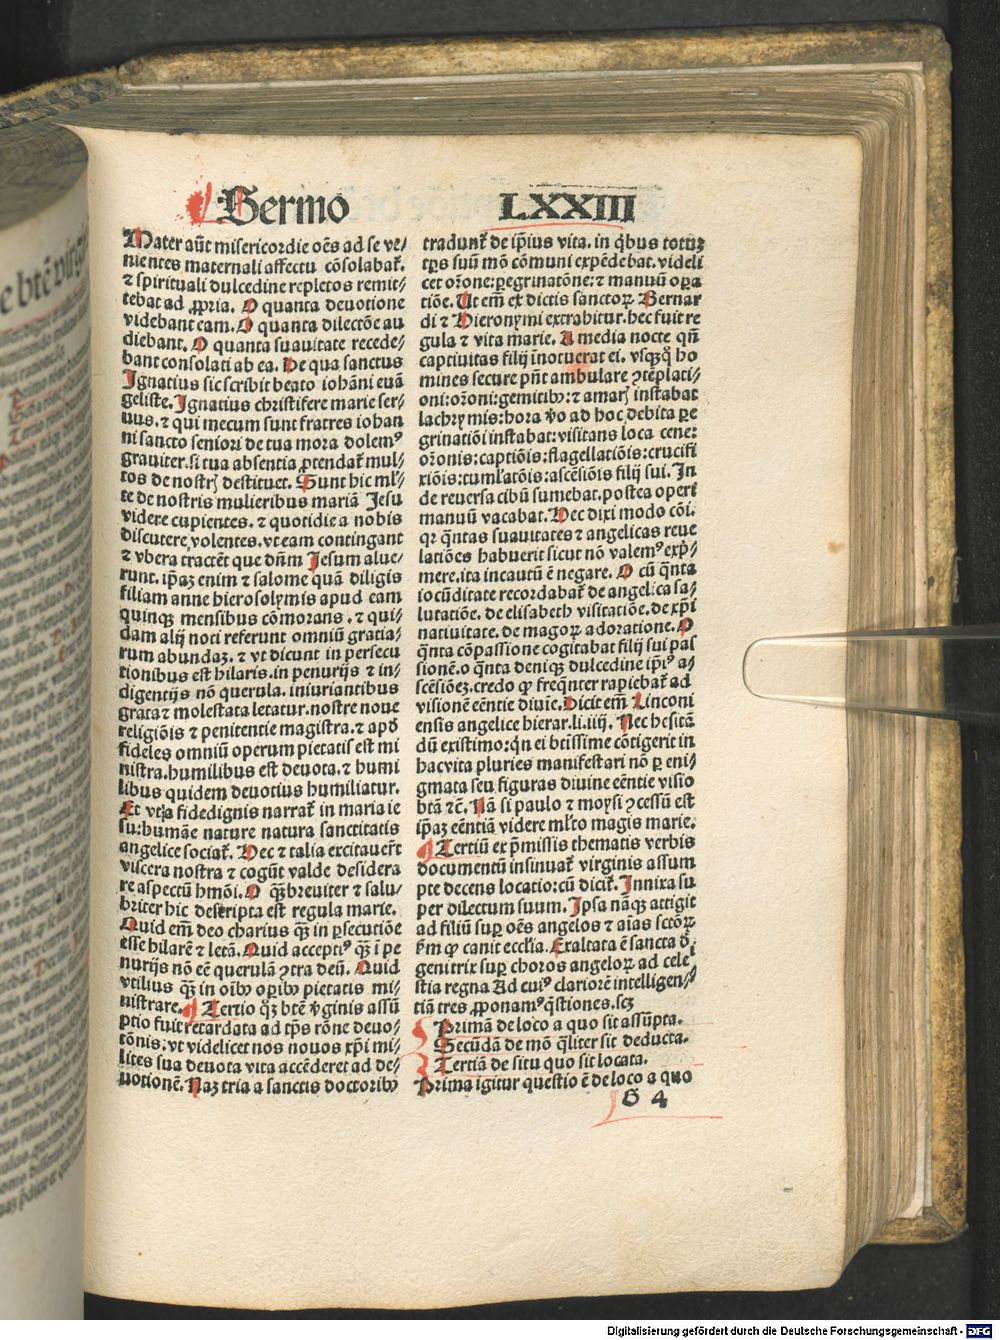 Sermo LXXIII
Mater aūt misericordie oēs ad se ve⸗
nientes maternali affectu cōsolabat᷑.
⁊ spirituali dulcedine repletos remit⸗
tebat ad ꝓpria. O quanta deuotione
videbant eam. O quanta dilectōe au
diebant. O quanta suauitate recede⸗
bant consolati ab ea. De qua sanctus
Ignatius sic scribit beato iohāni euā
geliste. Ignatius christifere marie ser⸗
uus. ⁊ qui mecum sunt fratres iohan
ni sancto seniori de tua mora dolemꝰ
grauiter. si tua absentia ꝓtendat᷑ mul⸗
tos de nostrꝭ destituet. Sunt hic ml̄⸗
te de nostris mulieribus mariā Jesu
videre cupientes. ⁊ quotidie a nobis
discutere volentes. vt eam contingant
⁊ vbera tractēt que dn̄m Jesum alue⸗
runt. ip̄aꝫ enim ⁊ salome quā diligis
filiam anne hierosolymis apud eam
quinqꝫ mensibus cōmorans. ⁊ qui⸗
dam alij noti referunt omniū gratia⸗
rum abundaꝫ. ⁊ vt dicunt in persecu
tionibus est hilaris. in penurijs ⁊ in⸗
digentijs nō querula. iniuriantibus
grata ⁊ molestata letatur. nostre noue
religiōis ⁊ penitentie magistra. ⁊ apd̄
fideles omniū operum pietatis est mi
nistra. humilibus est deuota. ⁊ humi
libus quidem deuotius humiliatur.
Et vt a fidedignis narrat᷑ in maria ie
su: humāe nature natura sanctitatis
angelice sociat᷑. Hec ⁊ talia excitauer̄t
viscera nostra ⁊ cogūt valde desidera
re aspectū hmōi. O qꝫ̄ breuiter ⁊ salu⸗
briter hic descripta est regula marie.
Quid em̄ deo charius qꝫ̄ in ꝑsecutiōe
esse hilarē ⁊ letā. Quid acceptiꝰ qꝫ̄ ī pe
nurijs nō eē querulā ꝯtra deū. Quid
vtilius qꝫ̄ in oībꝰ oꝑibꝰ pietatis mi⸗
nistrare. Tertio qꝫ̄ btē v̓ginis assū
ptio fuit retardata ad tp̄s rōne deuo⸗
tōnis. vt videlicet nos nouos xp̄i mi⸗
lites sua deuota vita accēderet ad de⸗
uotionē. Naꝫ tria a sanctis doctoribꝰ
tradunt᷑ de ip̄ius vita. in q̄bus totuꝫ
tp̄s suū mō cōmuni expēdebat. videli
cet orōne: ꝑegrinatōne: ⁊ manuū oꝑa
tiōe. Ut em̄ ex dictis sanctoꝝ Bernar
di ⁊ Hieronymi extrahitur. hec fuit re
gula ⁊ vita marie. A media nocte qn̄
captiuitas filij īnotuerat ei. vsqꝫqꝫ ho
mines secure pn̄t ambulare ꝯtēplati⸗
oni: orōni: gemitibꝰ: ⁊ amarꝭ instabat
lachrymis: hora v̓o ad hoc debita ꝑe
grinatiōi instabat: visitans loca cene:
orōnis: captiōis: flagellatiōis: crucifi
xiōis: tumlatōis: ascēsiōis filij sui. In
de reuersa cibū sumebat. postea operi
manuū vacabat. Hec dixi modo cōi.
qꝛ q̄ntas suauitates ⁊ angelicas reue
latiōes habuerit sicut nō valemꝰ exp̄⸗
mere. ita incautū ē negare. O cū q̄nta
iocūditate recordabat᷑ de angelica sa⸗
lutatiōe. de elisabeth visitatiōe. de xp̄i
natiuitate. de magoꝝ adoratione. O
q̄nta cōpassione cogitabat filij sui pas
sionē. o q̄nta deniqꝫ dulcedine ip̄iꝰ a⸗
scēsiōeꝫ. credo ꝙ freq̄nter rapiebat᷑ ad
visionē eēntie diuīe. Dicit em̄ Linconi
ensis angelice hierar. li. iiij. Nec hesitā
dū existimo: q̄n ei btīssime cōtigerit in
hac vita pluries manifestari nō ꝑ eni⸗
gmata seu figuras diuine eēntie visio
btā ⁊c̄. Nā si paulo ⁊ moysi ꝯcessū est
ip̄aꝫ eēntiā videre ml̄to magis marie.
Tertiū ex p̄missis thematis verbis
documentū insinuat᷑ virginis assum
pte decens locatio: cū dicit᷑. Innixa su
per dilectum suum. Ipsa nāqꝫ attigit
ad filiū suꝑ oēs angelos ⁊ aīas sctōꝝ
ẜm ꝙ canit ecclīa. Exaltata ē sancta d̓i
genitrix suꝑ choros angeloꝝ ad cele⸗
stia regna. Ad cuiꝰ clariorē intelligen⸗
tiā tres ꝓponamꝰ q̄stiones. scꝫ
Primā de loco a quo sit assūpta.
Secūdā de mō q̄liter sit deducta.
Tertiā de situ quo sit locata.
Prima igitur questio ē de loco a quo
G 4
Digitalisierung gefördert durch die Deutsche Forschungsgemeinschaft - DFG